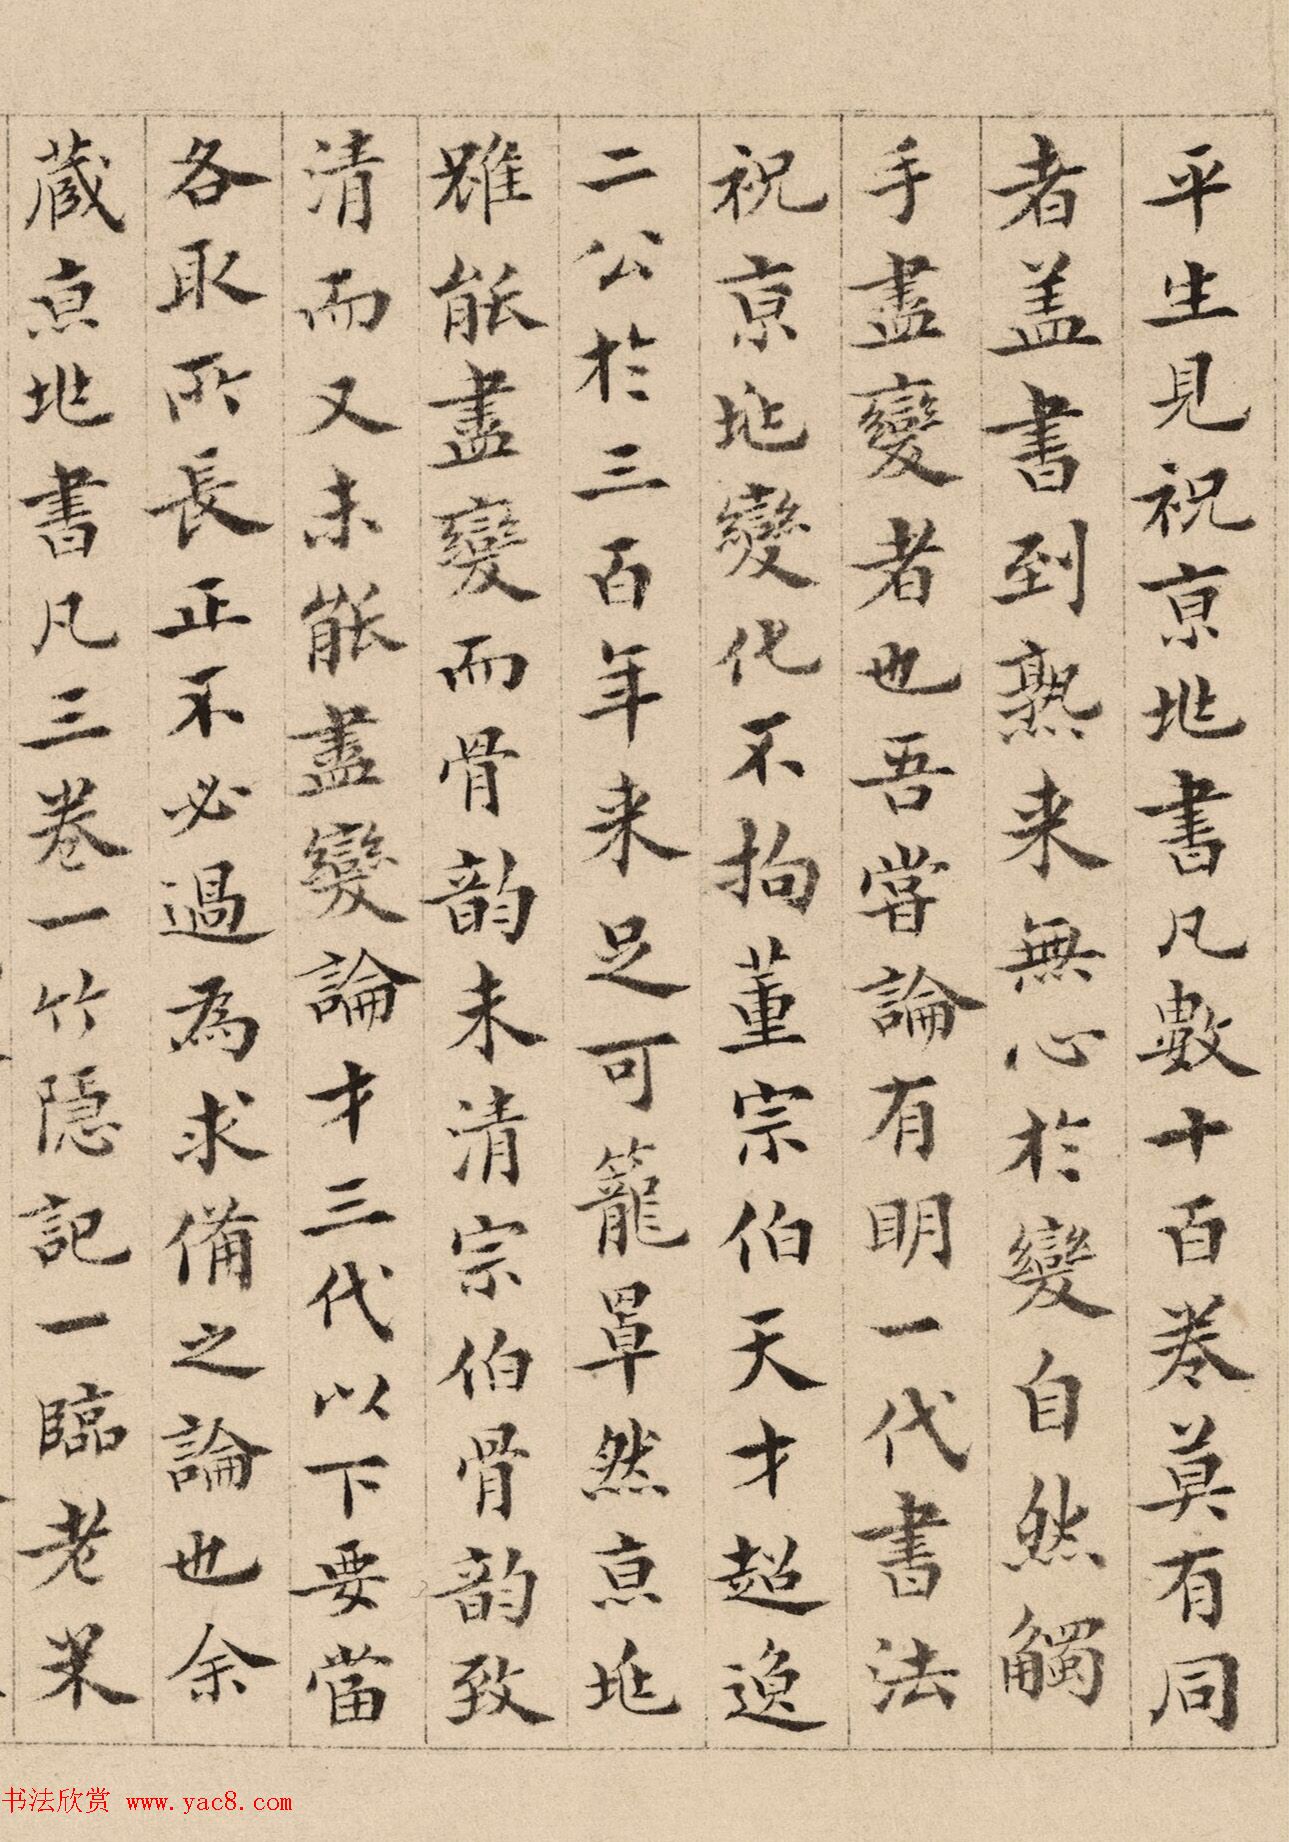 平生見祝京兆書凡數十百卷莫有同
者盖書到熟来無心於變自然觸
手盡變者也吾嘗論有明一代書法
祝京兆變化不拘董宗伯天才超逸
二公於三百年来足可籠罩然京兆
雖能盡變而骨韵未清宗伯骨韵致
清而又未能盡變論才三代以下要當
各取所長正不必過為求備之論也余
蔵京兆書凡三卷一竹隠記一臨老米
书法欣赏 www.yac8.com